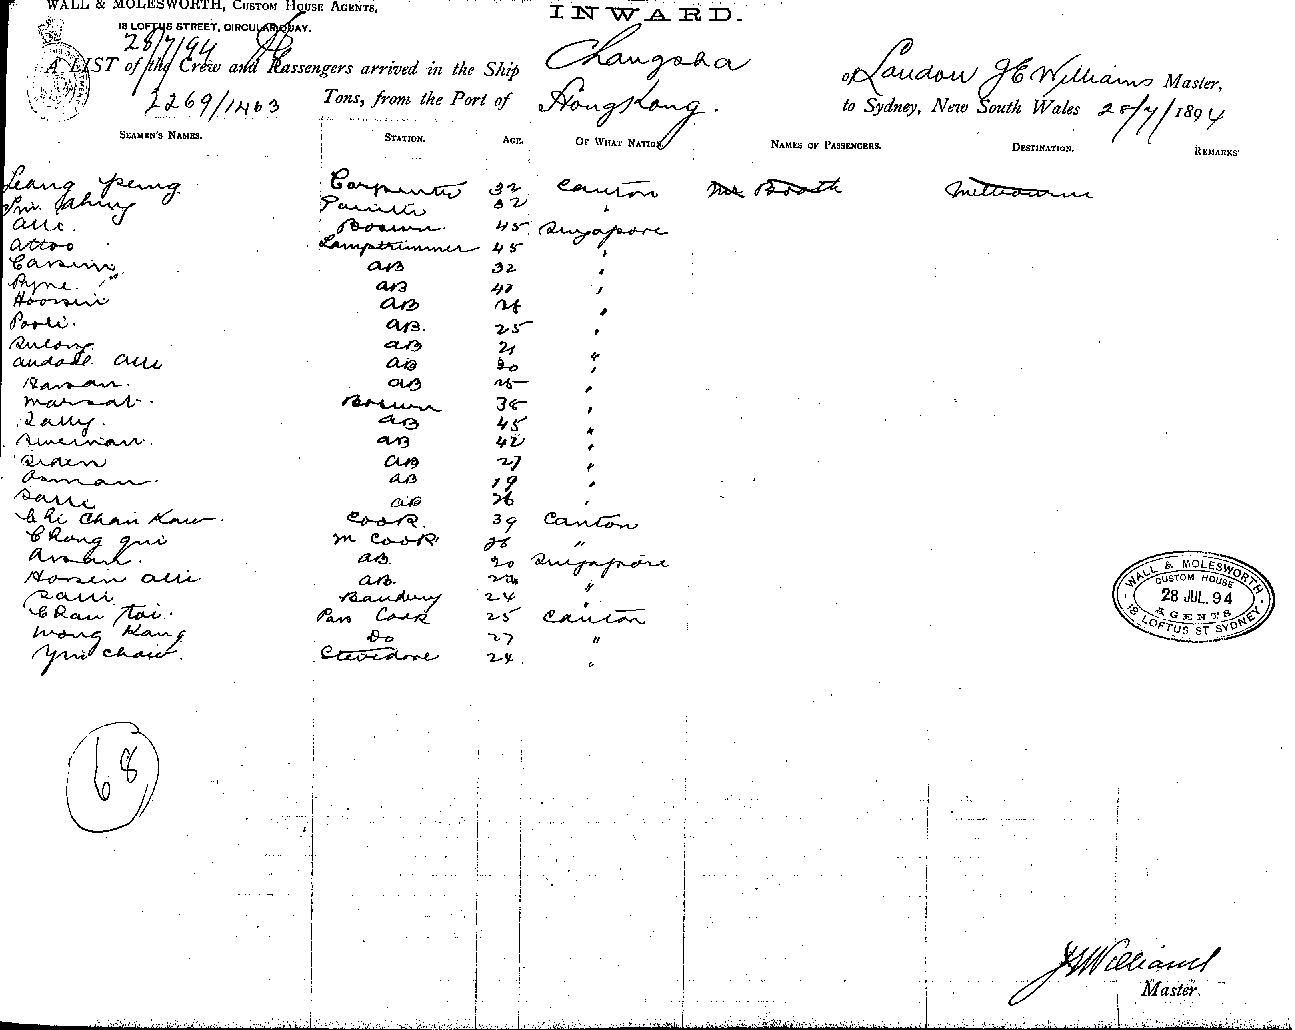 WALL & MOLESWORTH, CUSTOM HOUSE AGENTS,
18 LOFTUS STREET, CIRCULAR QUAY.
INWARD.
28/7/94
A LIST of the Crew and Passengers arrived in the Ship Changsha of London J E Williams Master,
2269/1463 Tons, from the Port of HongKong. to Sydney, New South Wales 28/7/1894
SEAMEN'S NAMES. STATION. AGE. OF WHAT NATION NAMES OF PASSENGERS. DESTINATION. REMARKS
Leang Peing Carpenter 32 Canton Mr Booth Melbourne
32 "
Alli. Bosun 45 Singapore
Attoo Lamptrimmer 45 "
Cassim AB 32 "
AB "
Hoosein AB "
AB. 25 "
AB 21 "
Alli AB 20 "
Hassan. AB 25 "
Marsat. Bosun 38 "
Sally. AB 45 "
AB 42 "
Siden AB 27 "
Osman. AB 19 "
AB 26 "
Chi Chan Kaw. Cook. 39 Canton
Chong Gui M Cook 28 "
AB. 20 Singapore
Hoosen Alli AB. "
24 "
Chan Tai. Pan Cook 25 Canton
Wong Kang Do 27 "
Yui Chaw. Stevedore 24. "
WALL & MOLESWORTH
CUSTOM HOUSE
28 JUL. 94
AGENTS
18 LOFTUS ST SYDNEY
68
J E Williams
Master.